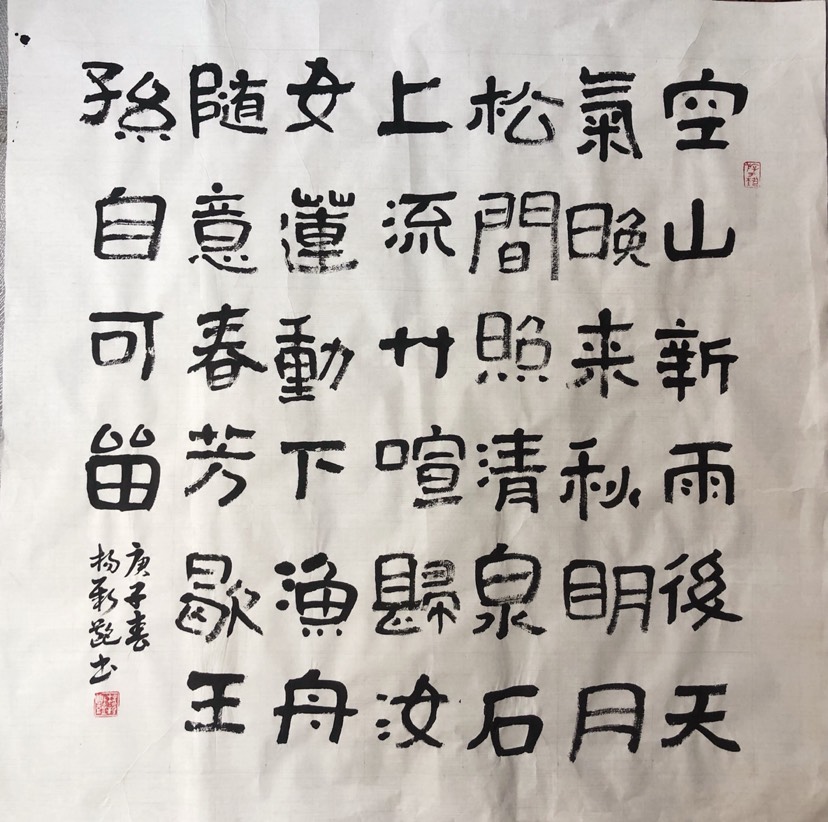 空山新雨後天
氣晚来秋明月
松間照清泉石
上流竹喧歸汝
女蓮動下漁舟
随意春芳歇王
孫自可留
庚子春
杨书